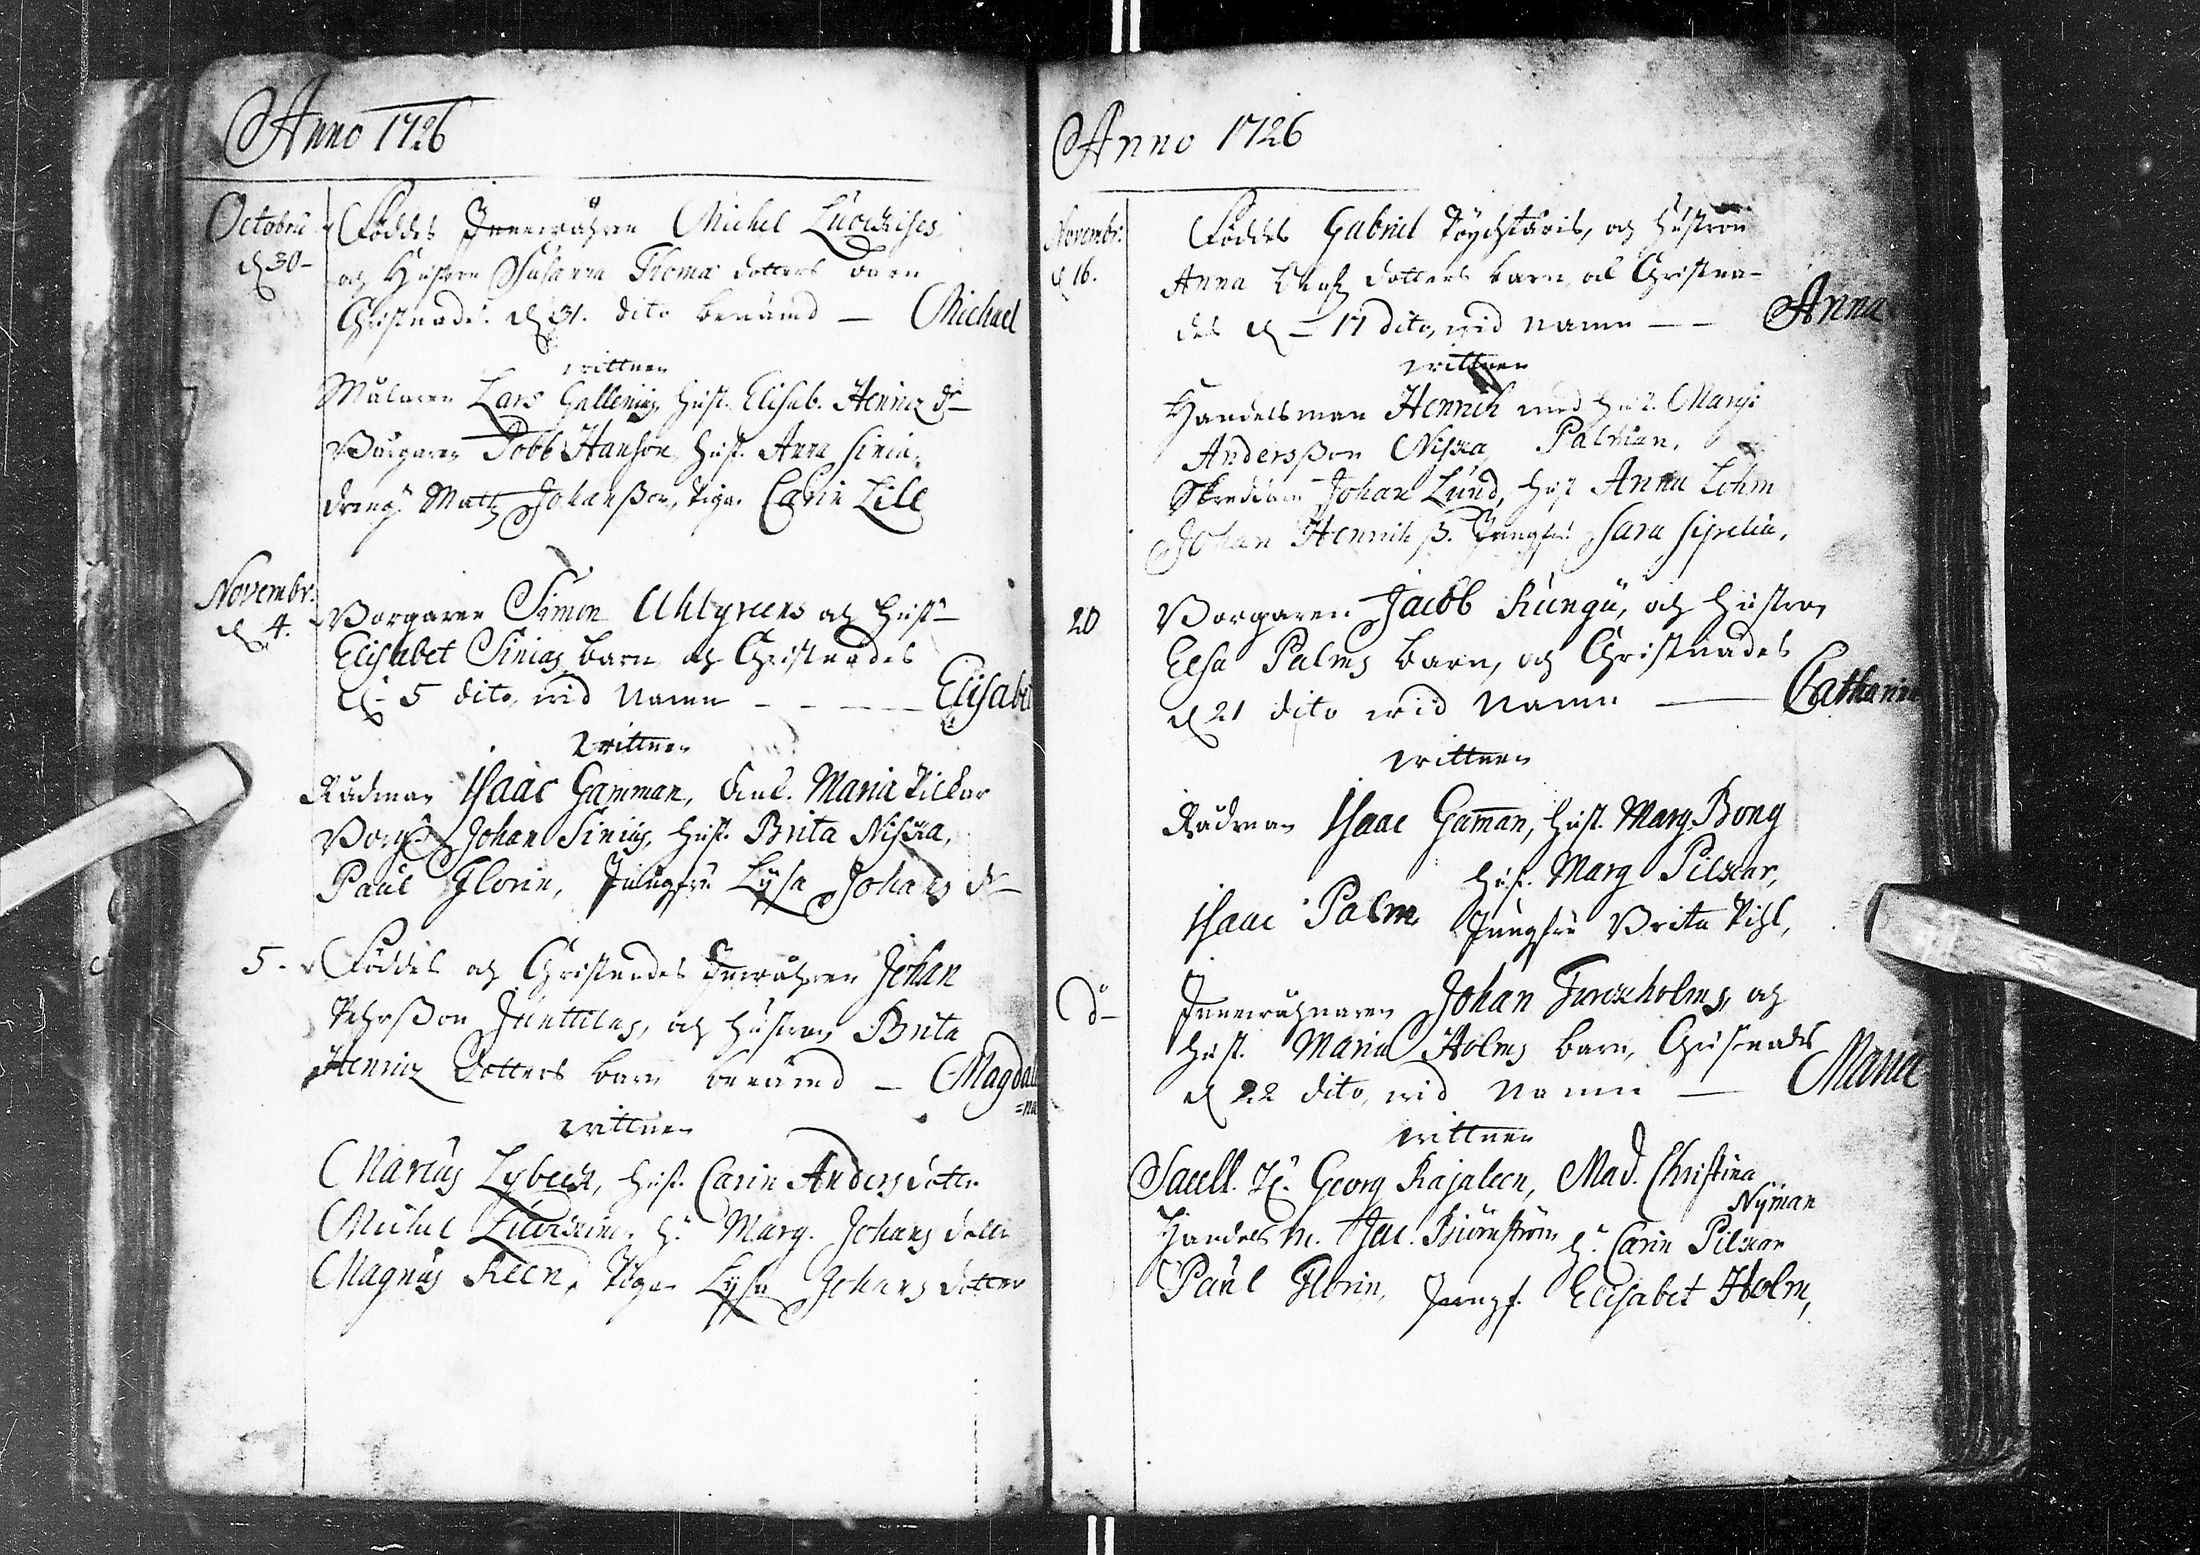 Anno 1726
Octobris d 30 – Föddes Innewåhren Michel
och Hustru Susanna Thomæ dotters barn
Christnades d 31. dito benämd — Michael
wittnen
Målaren Lars Gallenius, hust. Elisab. Henrix dr
Borgaren Jobb Hanson, hust. Anna Sinia,
dreng. Matz Johanßon, Piga Carin Lill
Novembr: d 4. Borgaren Simon Ahlgreens och hust
Elisabet Sinias barn och Christnades
d 5 dito, wid Namn – – – – Elisabet
wittnen
Rådman Isaac Gamman, Maria Pilkar
Borg. Johan Sinius, hust. Brita Nissza,
Paul Florin, Jungfru Lysa Johans dr
5. Föddes och Christnades Inwåhren Johan
Pehrßon Junttilas, och hustrus Brita
Henrix dotters barn benämd — Magdale
=na
wittnen
Marcus Lybeck, hust. Carin Anders dotter
Michel h. Marg. Johans dotter
Magnus Reen, Piga Lysa Johans dotter
Anno 1726
Novembr: d 16. Föddes Gabriel Töychtäris, och hustrus
Anna dotters barn, och Christna-
des d – 17 dito, wid namn – – Anna
wittnen
Handelsman Henrich med hust. Marg:
Andersßon Nissza, Palman,
Skreddare Johan Lund, hust Anna Lohm
Johan Henrikß. Jungfru Sara Siprelia,
20 Borgaren Jacob Rungu, och hustrus
Elsa Palms barn, och Christnades
d 21 dito wid Namn — Catharina
wittnen
Rådman Isaac Gam̄an, hust. Marg. Bong
hust. Marg Pilkar,
Isaac Palm Jungfru Brita Pihl,
do – Innewåhnaren Johan Furckholms, och
hust. Maria Holms barn, Christnades
d 22 dito, wid Namn — Maria
wittnen
Sacell. H. Georg Rajaleen, Mad. Christina
Nyman
Handels m. Jac. Biörnström h. Carin Pilkar
Paul Florin, Jungf. Elisabet Holm,